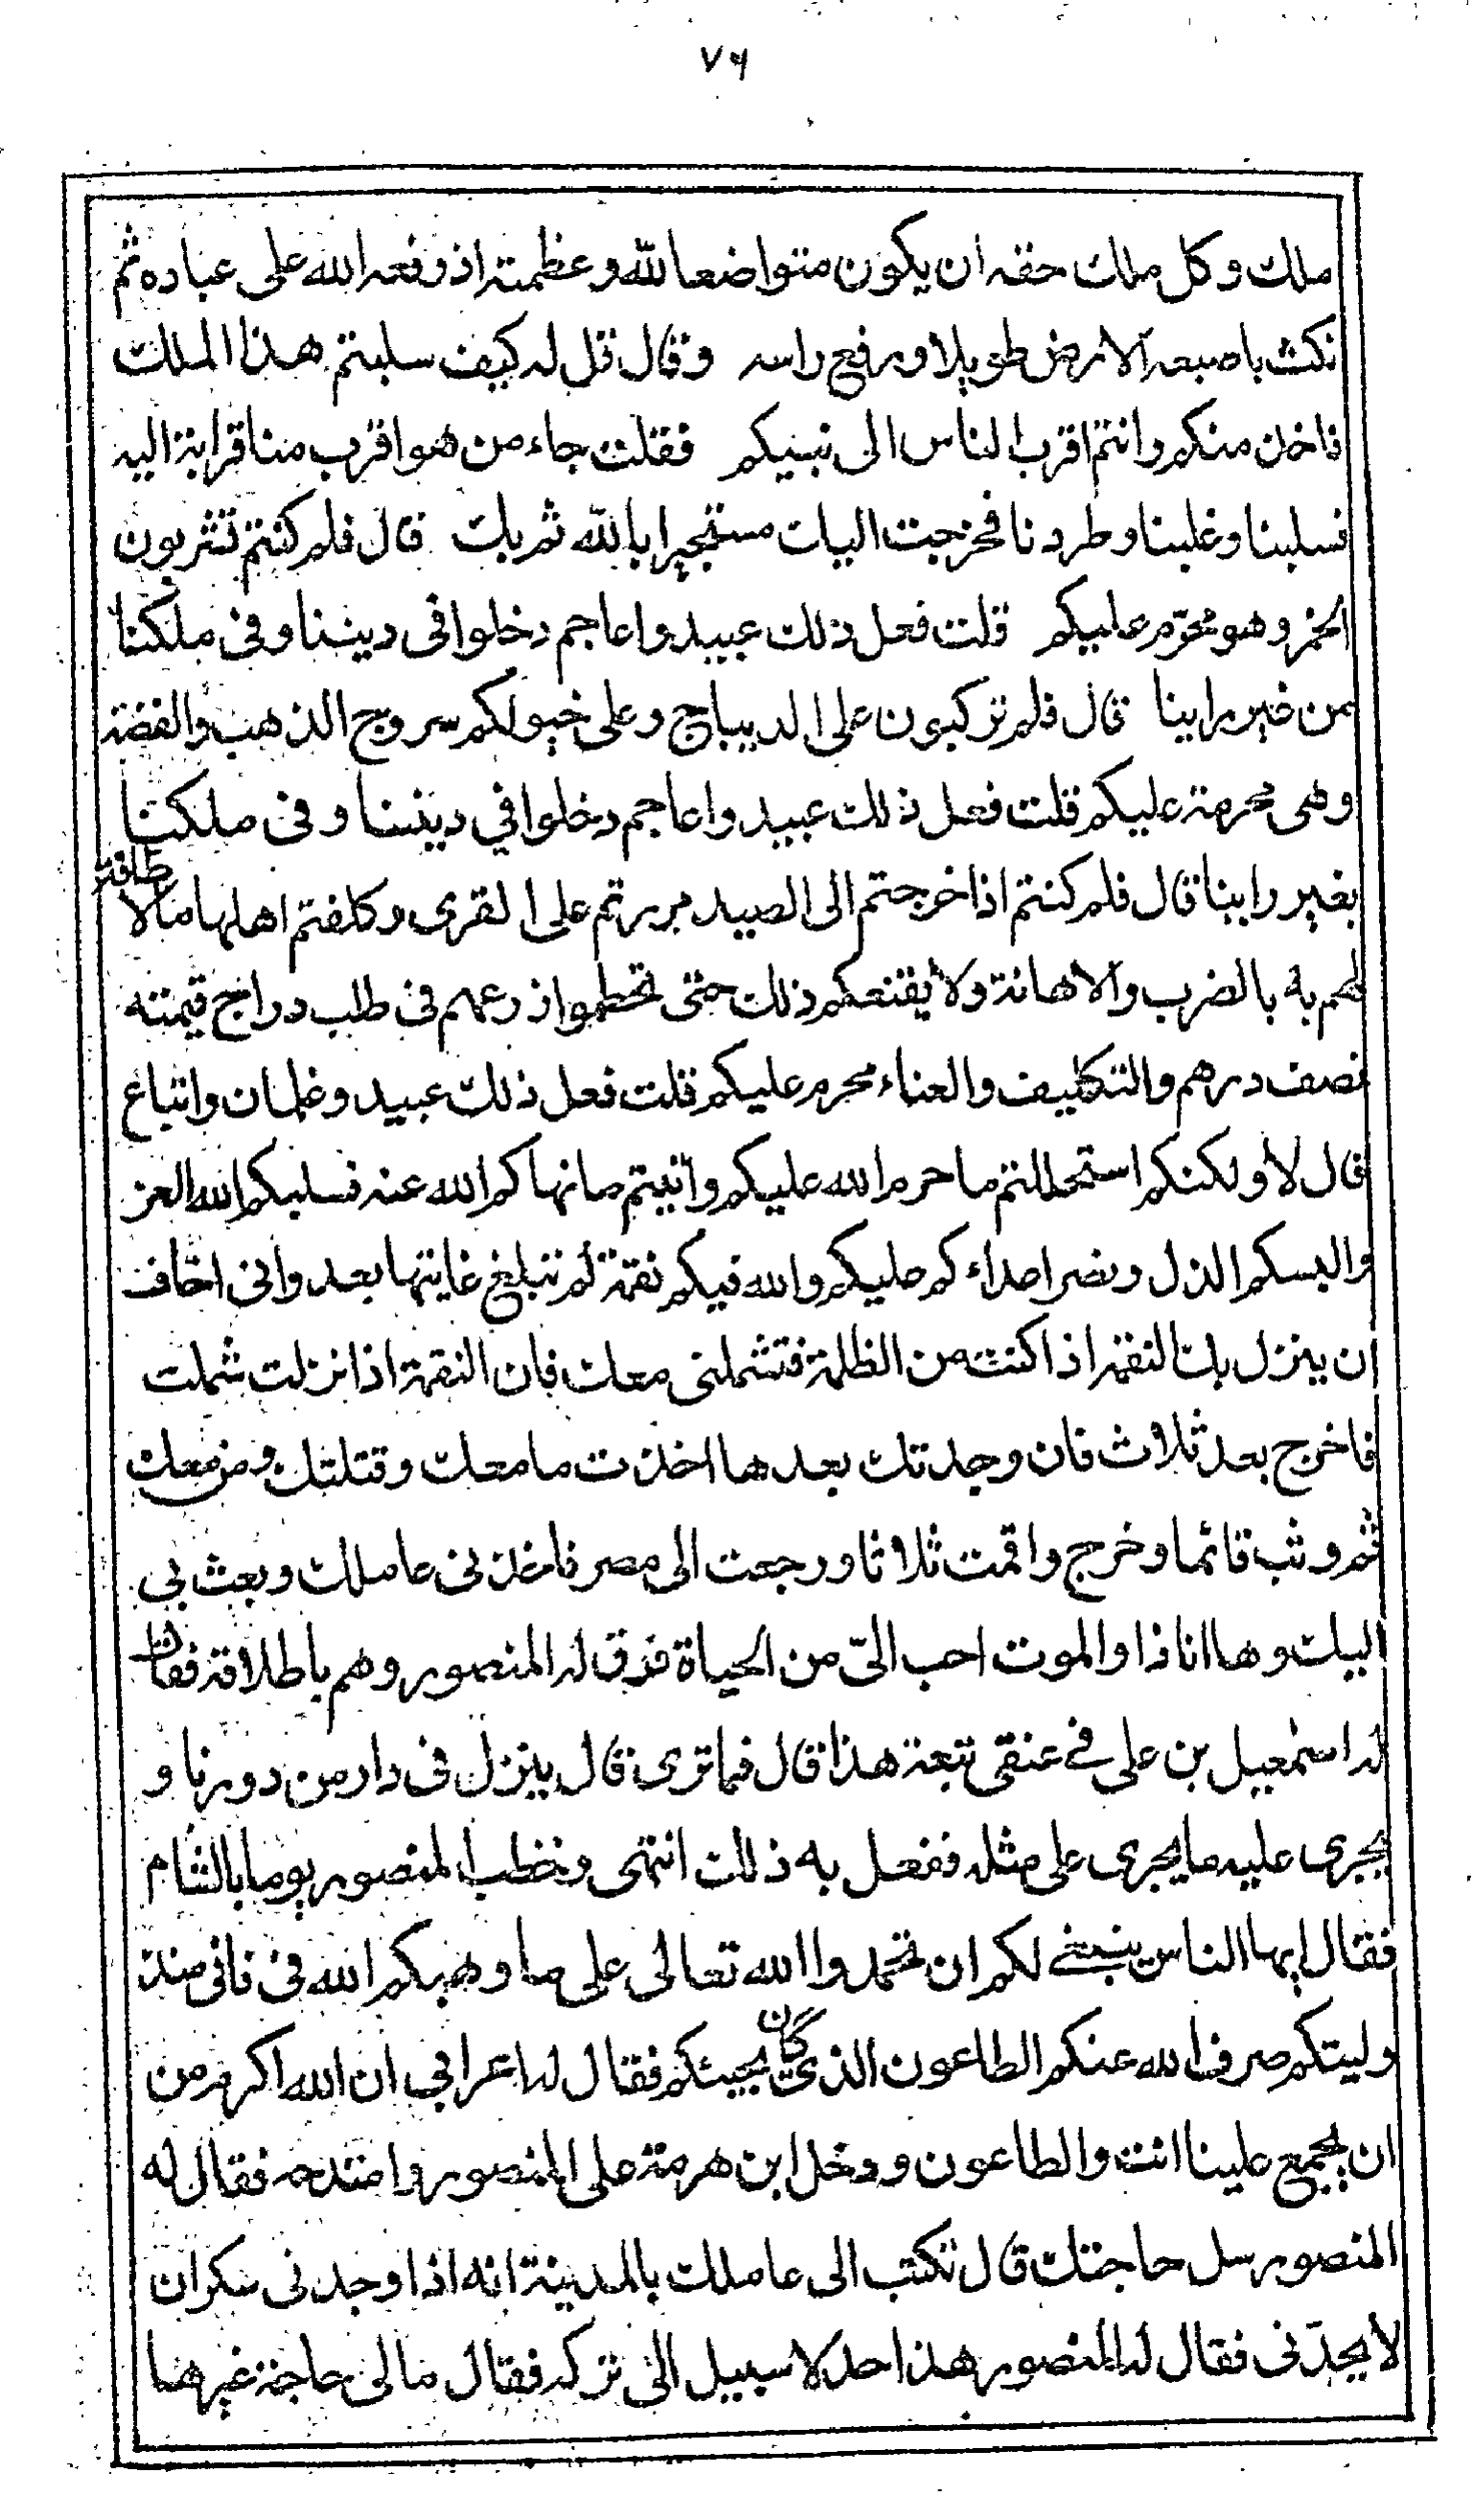 ٧٦
ملك وكل ملك حقه ان يكون متواضعا لله وعظمته اذ رفعه الله على عباده ثم
نكث باصبعه الارض طويلا ورفع راسه وقال قل له كيف سلبتم هذا الملك
فاخذ منكم وانتم اقرب الناس الى نبيكم فقلت جاء من هو اقرب منا قرابة اليه
فسلبنا وغلبنا وطردنا فخرجت اليك مستجيرا بالله ثم بك قال فلم كنتم تشربون
الخمر وهو محرّم عليكم قلت فعل ذلك عبيد واعاجم دخلوا فى ديننا وفى ملكنا
من غير راينا قال فلم تركبون على الديباج وعلى خيولكم سروج الذهب والفضة
وهى محرمة عليكم قلت فعل ذلك عبيد واعاجم دخلوا في ديننا وفى ملكنا
بغير راينا قال فلم كنتم اذا خرجتم الى الصيد مررتم على القرى وكلفتم اهلها مالا طاقة
لهم به بالضرب والاهانة ولا يقنعكم ذلك حتى تحطموا زرعهم فى طلب دراج قيمته
نصف درهم والتكليف والعناء محرم عليكم قلت فعل ذلك عبيد وغلمان واتباع
قال لا ولكنكم استحللتم ما حرم الله عليكم واتيتم ما نهاكم الله عنه فسلبكم الله العز
والبسكم الذل ونصر اعداءكم عليكم ولله فيكم نقمة لم تبلغ غايتها بعد وانى اخاف
ان ينزل بك النقمة اذا كنت من الظلمة فتشملنى معك فان النقمة اذا نزلت شملت
فاخرج بعد ثلاث فان وجدتك بعدها اخذت ما معك وقتلتك ومن معك
ثم وثب قائما وخرج واقمت ثلاثا ورجعت الى مصر فاخذنى عاملك وبعث بى
اليك وها انا ذا والموت احب الىّ من الحياة فرق له المنصور وهم باطلاقه فقال
له اسمعيل بن على فى عنقى تبعة هذا قال فما ترى قال ينزل فى دار من دورنا و
يجرى عليه ما يجرى على مثله ففعل به ذلك انتهى وخطب المنصور يوما بالشام
فقال ايها الناس ينبغى لكم ان تحمدوا الله تعالى على ما وهبكم الله فى فانى منذ
وليتكم صرف الله عنكم الطاعون الذى كان يجيئكم فقال له اعرابي ان الله اكرم من
ان يجمع علينا انت والطاعون ودخل ابن هرمة على المنصور وامتدحه فقال له
المنصور سل حاجتك قال تكتب الى عاملك بالمدينة انه اذا وجدنى سكران
لا يحدّنى فقال له المنصور هذا حد لا سبيل الى تركه فقال مالى حاجة غيرها